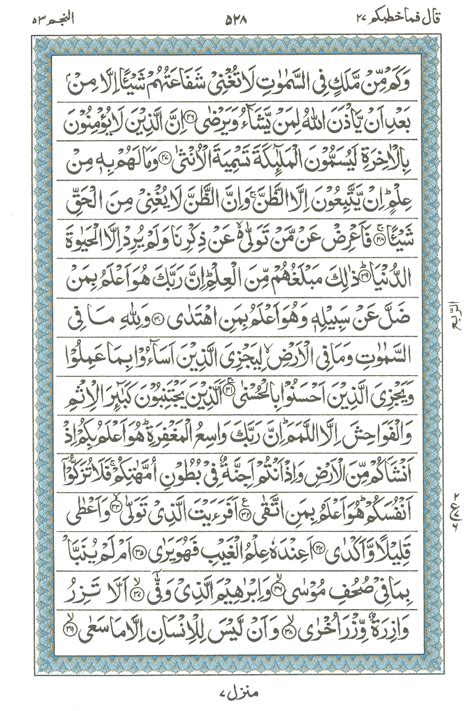 قال فما خطبكم ۲۷ ۵۲۸ النجم ۵۳
وَكَمْ مِّنْ مَّلَكٍ فِی السَّمٰوٰتِ لَا تُغْنِیْ شَفَاعَتُهُمْ شَیْـًٔا اِلَّا مِنْۢ
بَعْدِ اَنْ یَّاْذَنَ اللّٰهُ لِمَنْ یَّشَآءُ وَیَرْضٰی ﴿۲۶﴾ اِنَّ الَّذِیْنَ لَا یُؤْمِنُوْنَ
بِالْاٰخِرَةِ لَیُسَمُّوْنَ الْمَلٰٓئِكَةَ تَسْمِیَةَ الْاُنْثٰی ﴿۲۷﴾ وَمَا لَهُمْ بِهٖ مِنْ
عِلْمٍ ؕ اِنْ یَّتَّبِعُوْنَ اِلَّا الظَّنَّ ۚ وَاِنَّ الظَّنَّ لَا یُغْنِیْ مِنَ الْحَقِّ
شَیْـًٔا ﴿۲۸﴾ فَاَعْرِضْ عَنْ مَّنْ تَوَلّٰی ۙ عَنْ ذِكْرِنَا وَلَمْ یُرِدْ اِلَّا الْحَیٰوةَ
الدُّنْیَا ﴿۲۹﴾ ذٰلِكَ مَبْلَغُهُمْ مِّنَ الْعِلْمِ ؕ اِنَّ رَبَّكَ هُوَ اَعْلَمُ بِمَنْ
ضَلَّ عَنْ سَبِیْلِهٖ وَهُوَ اَعْلَمُ بِمَنِ اهْتَدٰی ﴿۳۰﴾ وَلِلّٰهِ مَا فِی
السَّمٰوٰتِ وَمَا فِی الْاَرْضِ ۙ لِیَجْزِیَ الَّذِیْنَ اَسَآءُوْا بِمَا عَمِلُوْا
وَیَجْزِیَ الَّذِیْنَ اَحْسَنُوْا بِالْحُسْنٰی ﴿۳۱﴾ اَلَّذِیْنَ یَجْتَنِبُوْنَ كَبٰٓئِرَ الْاِثْمِ
وَالْفَوَاحِشَ اِلَّا اللَّمَمَ ؕ اِنَّ رَبَّكَ وَاسِعُ الْمَغْفِرَةِ ؕ هُوَ اَعْلَمُ بِكُمْ اِذْ
اَنْشَاَكُمْ مِّنَ الْاَرْضِ وَاِذْ اَنْتُمْ اَجِنَّةٌ فِیْ بُطُوْنِ اُمَّهٰتِكُمْ ۚ فَلَا تُزَكُّوْۤا
اَنْفُسَكُمْ ؕ هُوَ اَعْلَمُ بِمَنِ اتَّقٰی ﴿۳۲﴾ اَفَرَءَیْتَ الَّذِیْ تَوَلّٰی ﴿۳۳﴾ وَاَعْطٰی
قَلِیْلًا وَّاَكْدٰی ﴿۳۴﴾ اَعِنْدَهٗ عِلْمُ الْغَیْبِ فَهُوَ یَرٰی ﴿۳۵﴾ اَمْ لَمْ یُنَبَّاْ
بِمَا فِیْ صُحُفِ مُوْسٰی ﴿۳۶﴾ وَاِبْرٰهِیْمَ الَّذِیْ وَفّٰیۤ ﴿۳۷﴾ اَلَّا تَزِرُ
وَازِرَةٌ وِّزْرَ اُخْرٰی ﴿۳۸﴾ وَاَنْ لَّیْسَ لِلْاِنْسَانِ اِلَّا مَا سَعٰی ﴿۳۹﴾
الربع
منزل ۷